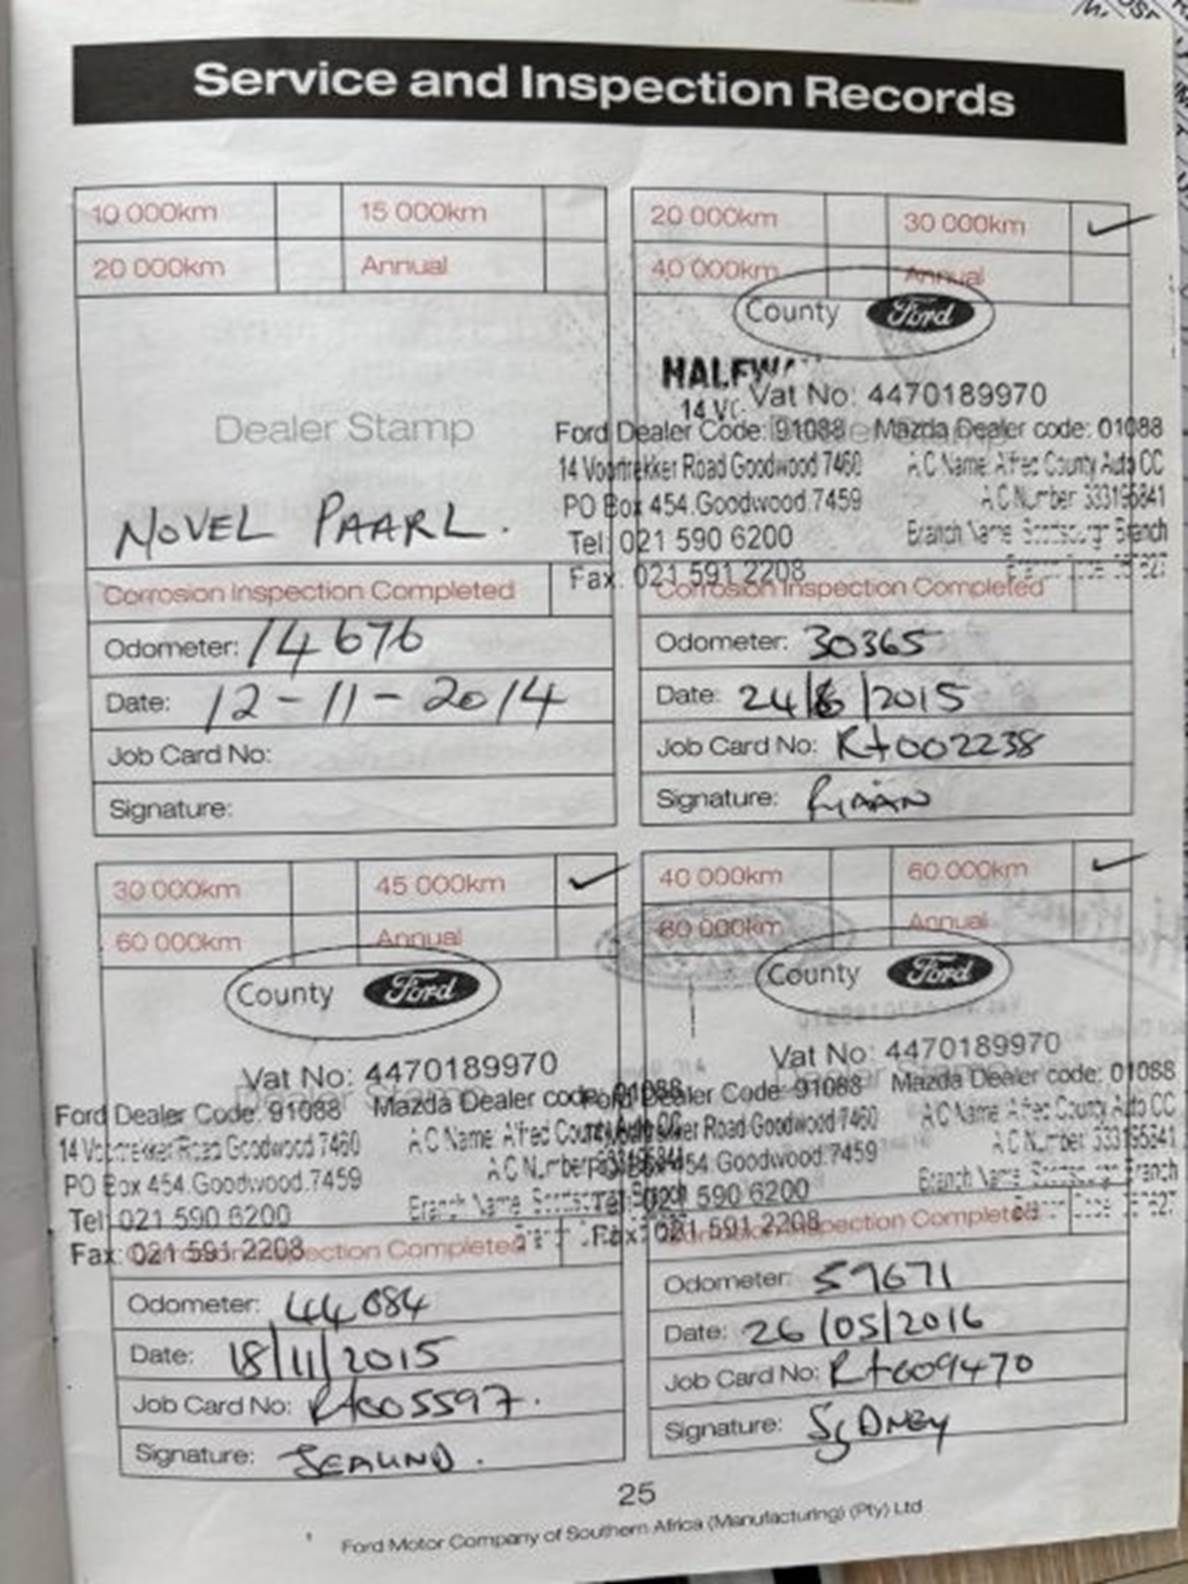 Service and Inspection Records
10 000km 15 000km
20 000km Annual
Dealer Stamp
NOVEL PAARL.
Corrosion Inspection Completed
Odometer: 14676
Date: 12-11-2014
Job Card No:
Signature:
20 000km 30 000km ✓
40 000km Annual
County Ford
HALFWA
14 VO
Vat No: 4470189970
Ford Dealer Code: 91088 Mazda Dealer code: 01088
14 Voortrekker Road Goodwood 7460 A C Name: Alfred County Auto CC
PO Box 454 Goodwood 7459 A C Number
Tel: 021 590 6200 Branch Name Scottburgh Branch
Fax: 021 591 2208
Corrosion Inspection Completed
Odometer: 30365
Date: 24/6/2015
Job Card No: R+002238
Signature:
30 000km 45 000km ✓
60 000km Annual
County Ford
Vat No: 4470189970
Ford Dealer Code: 91088 Mazda Dealer code: 01088
14 Voortrekker Road Goodwood 7460 A C Name: Alfred County Auto CC
PO Box 454 Goodwood 7459 A C Number
Tel: 021 590 6200 Branch Name Scottburgh Branch
Fax: 021 591 2208
Inspection Completed
Odometer: 44084
Date: 18/11/2015
Job Card No: R+005597.
Signature:
40 000km 60 000km ✓
80 000km Annual
County Ford
Vat No: 4470189970
Ford Dealer Code: 91088 Mazda Dealer code: 01088
Road Goodwood 7460 A C Name: Alfred County Auto CC
454 Goodwood 7459 A C Number
590 6200 Branch Name Scottburgh Branch
Fax: 021 591 2208
Inspection Completed
Odometer: 59671
Date: 26/05/2016
Job Card No: R+009470
Signature: SyDNEY
25
Ford Motor Company of Southern Africa (Manufacturing) (Pty) Ltd